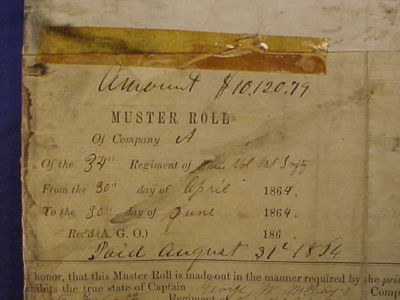 Amount $10,120.79
MUSTER ROLL
Of Company A
Of the 34th Regiment of Vol Inf
From the 30th day of April 1864,
To the 30th day of June 1864.
Rec'd (A. G. O.) 186
Paid August 31st 18
honor, that this Muster Roll is made out in the manner required by the pri
the true state of Captain George W. Comp
Regiment of